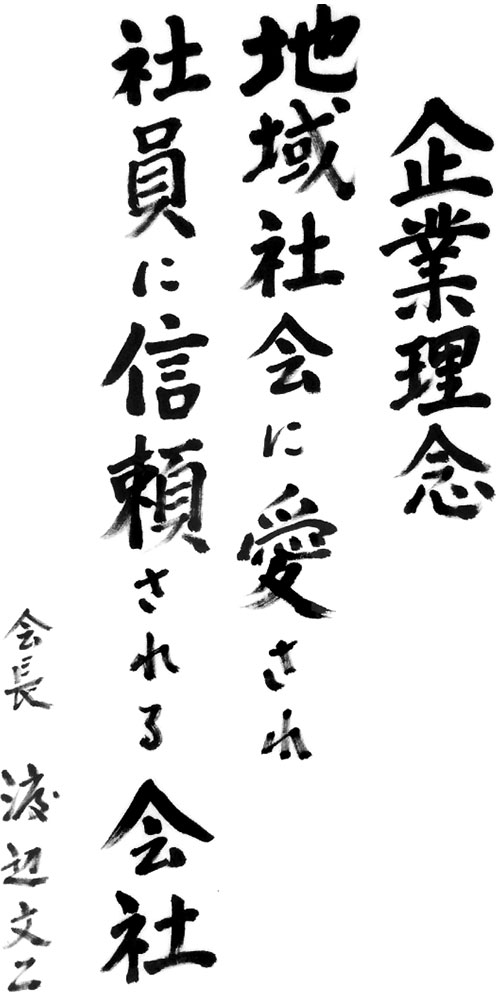 企業理念
地域社会に愛され
社員に信頼される会社
会長 渡辺文二